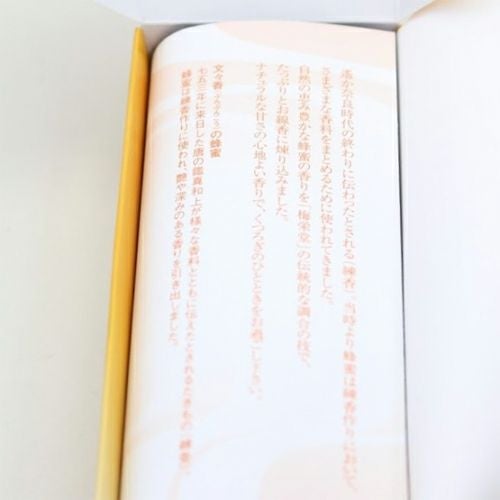 遙か奈良時代の終わりに伝わったとされる「練香」。当時より蜂蜜は練香作りにおいて、
さまざまな香料をまとめるために使われてきました。
自然の恵み豊かな蜂蜜の香りを「梅栄堂」の伝統的な調合の技で、
たっぷりとお線香に煉り込みました。
ナチュラルな甘さの心地よい香りで、くつろぎのひとときをお過ごし下さい。
文々香(ぶんぶんこう)の蜂蜜
七五三年に来日した唐の鑑真和上が様々な香料とともに伝えたとされるたきもの「練香」。
蜂蜜は練香作りに使われ、艶や深みのある香りを引き出しました。